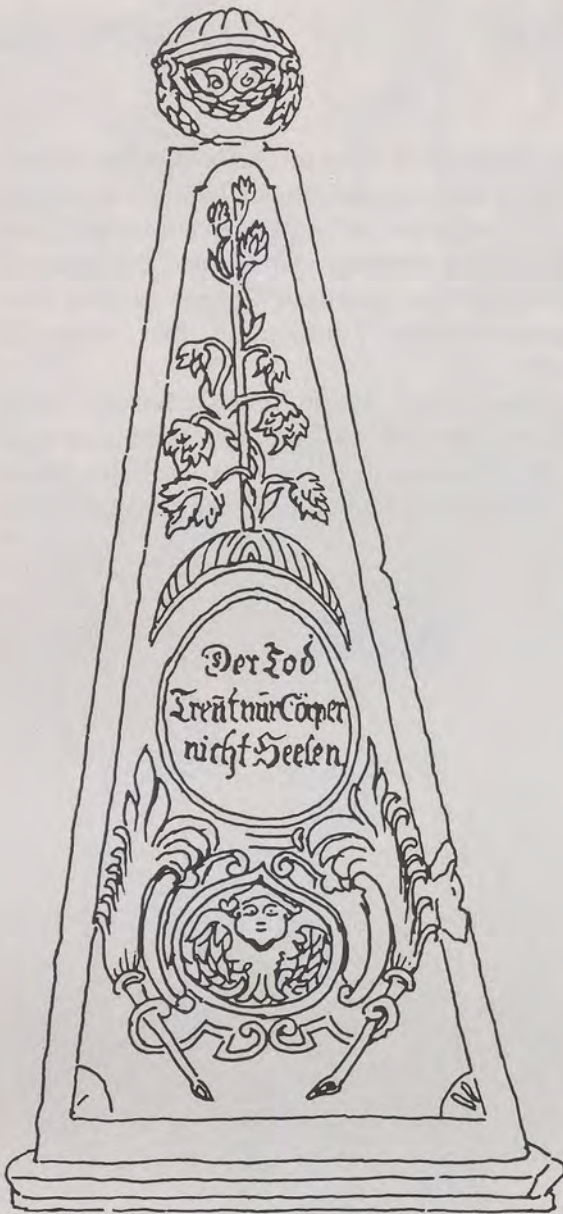 Der Tod
Treñt nur Cörper
nicht Seelen.